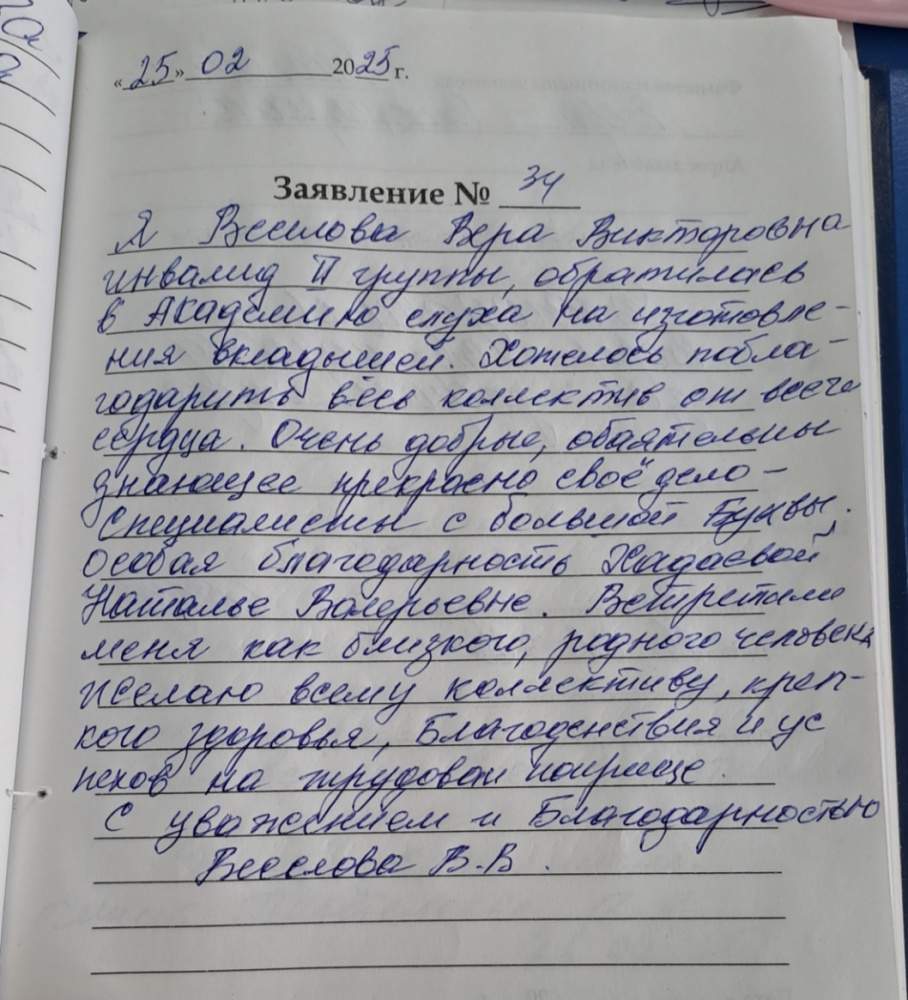 «25» 02 2025 г.
Заявление № 34
Я Веселова Вера Викторовна
инвалид II группы, обратилась
в Академию слуха на изготовле-
ния вкладышей. Хотелось побла-
годарить весь коллектив от всего
сердца. Очень добрые, обаятельны
знающее прекрасно своё дело –
Специалисты с большой Буквы.
Особая благодарность
Наталье Валерьевне. Встретили
меня как близкого, родного человека
Желаю всему коллективу, креп-
кого здоровья, Благоденствия и ус
пехов на трудовом поприще.
С уважением и Благодарностью
Веселова В.В.